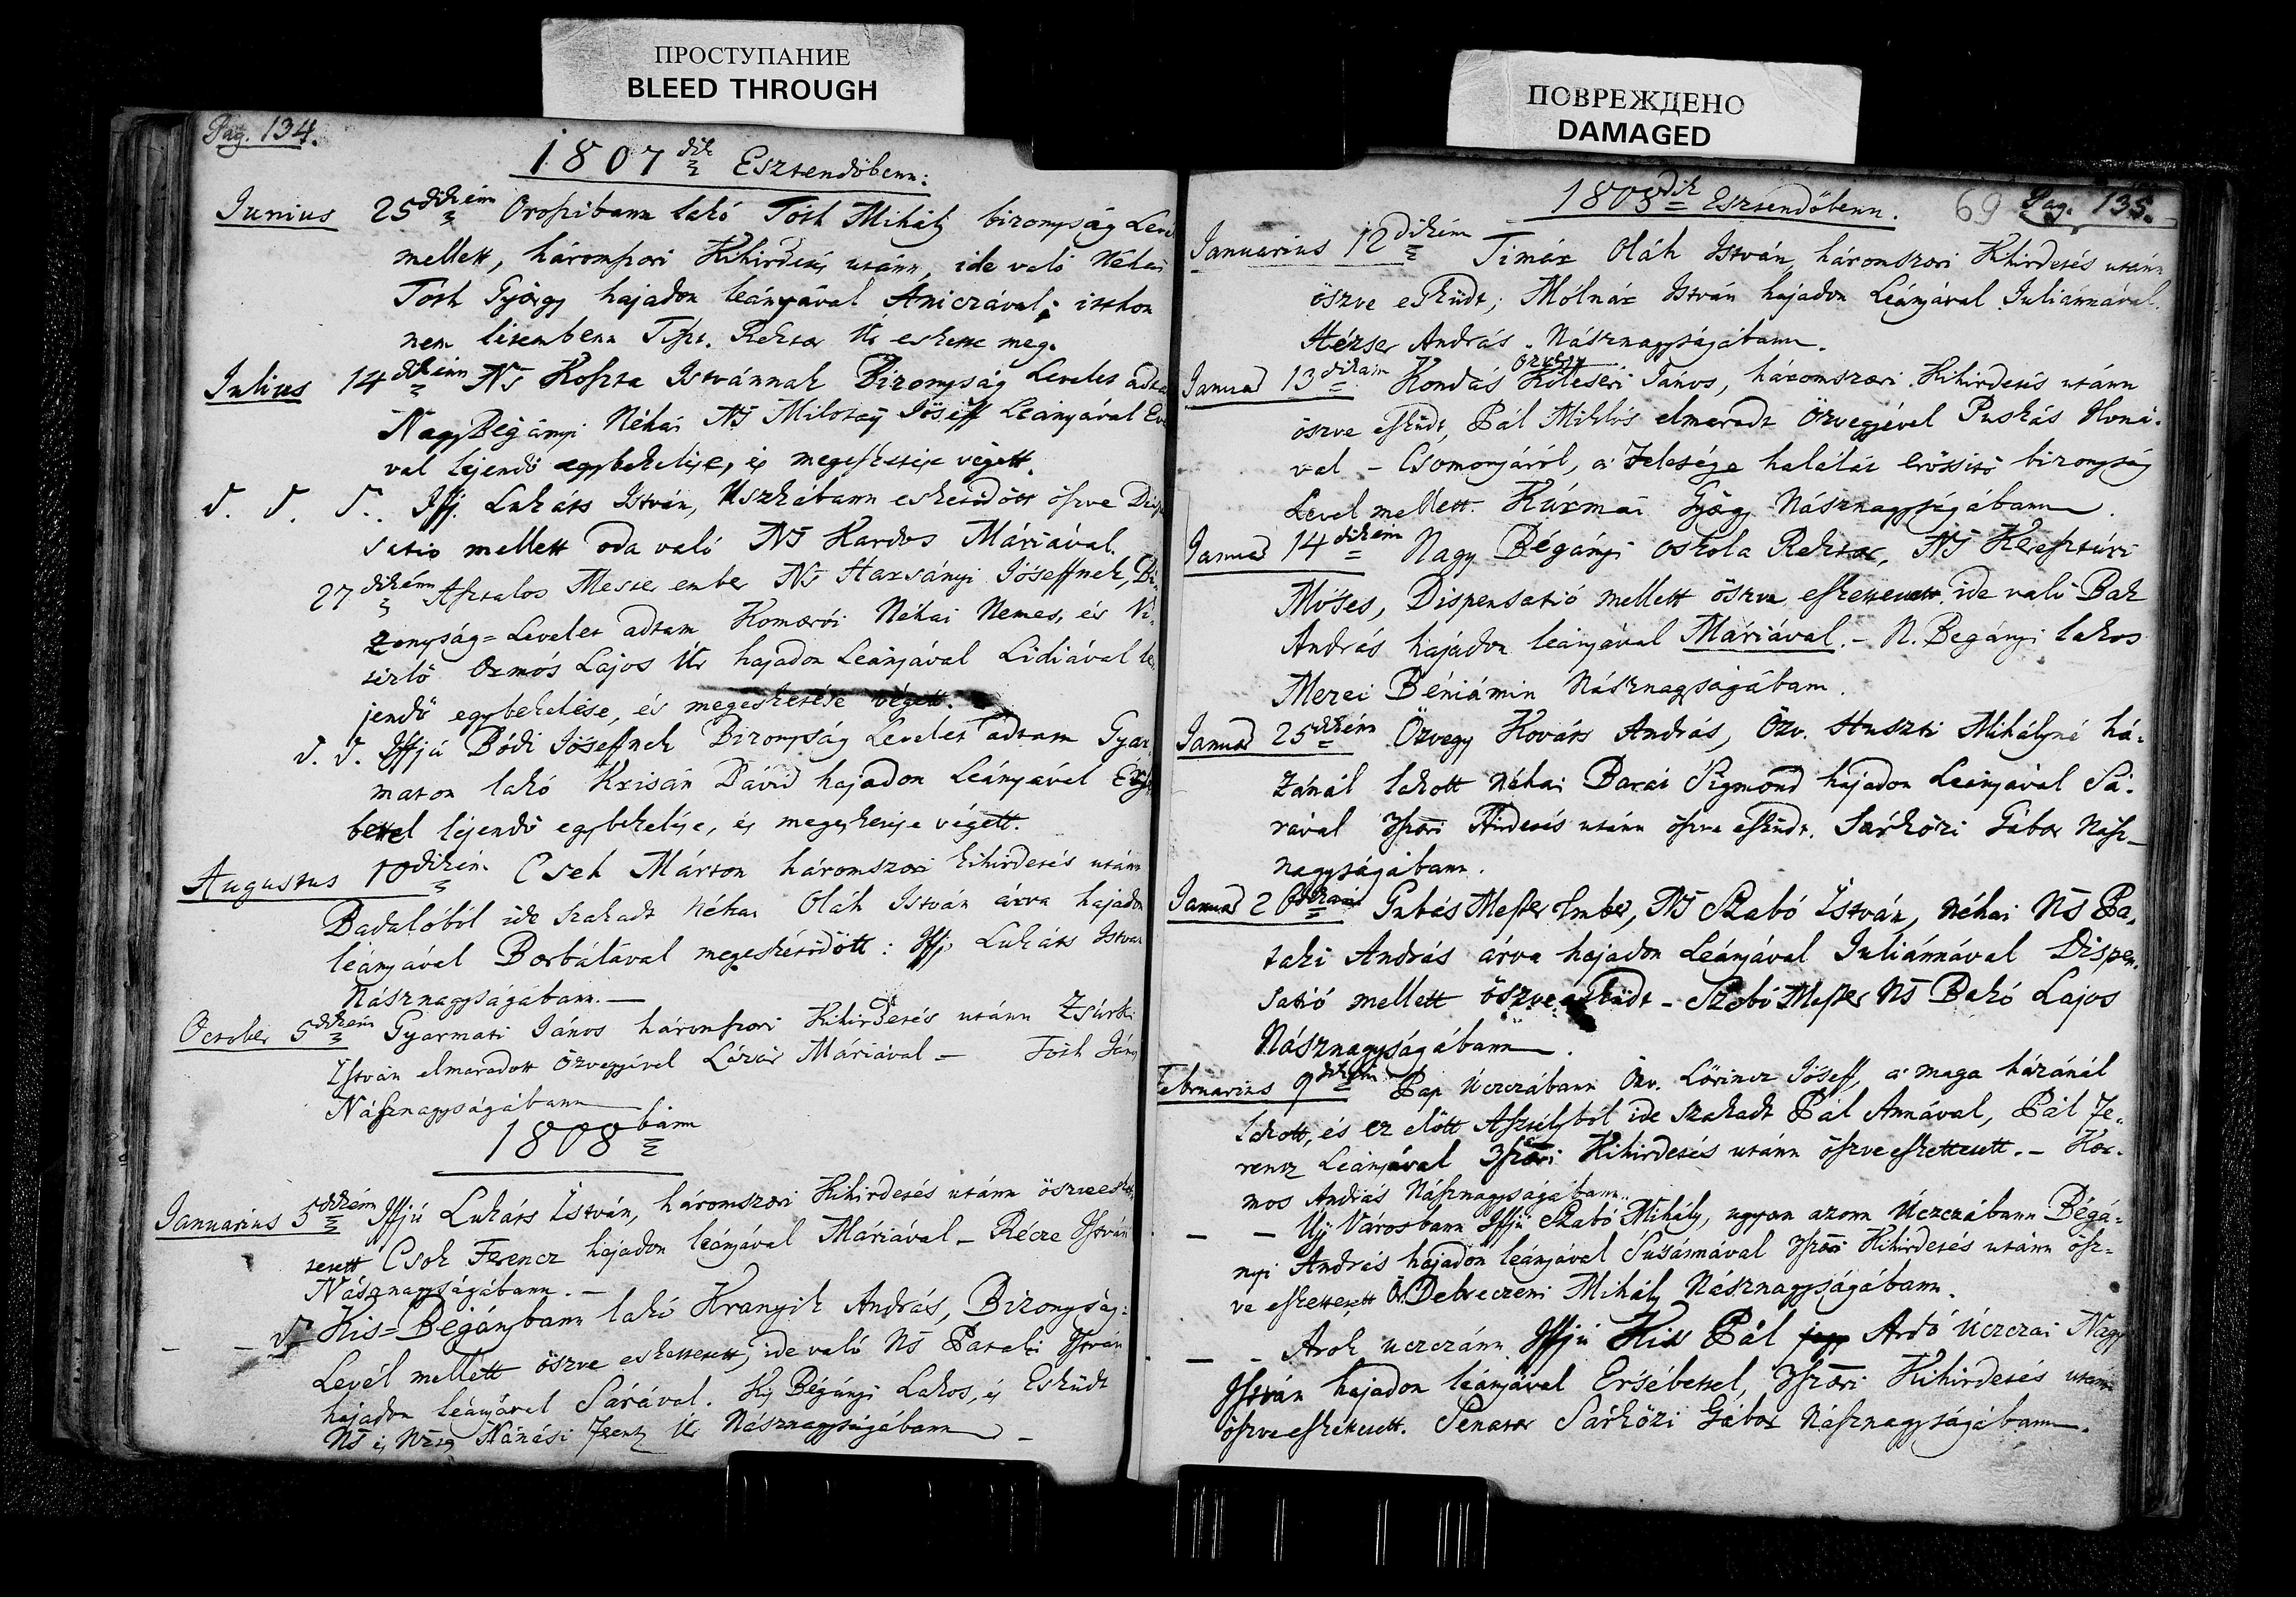 ПРОСТУПАНИЕ
BLEED THROUGH
ПОВРЕЖДЕНО
DAMAGED
Pag. 134.
1807dik Esztendöbenn:
Junius 25dikénn Orosibann lakó Tóth Mihály bizonyság Leve
mellett, háromszori Kihirdetés utánn, ide való Néhai
Toth György hajadon leányával Aniczával; itthon
nem litemben Rektor Ur eskette meg.
Julius 14dikénn Ns Koszta Istvánnak Bizonyság Levelet adta
Nagy Bégányi Néhai Ns Milotay Jóseff Leányával
val lejendő egybekelése, és megeskettése végett.
Ifj. Lukáts István, Uszkábann esketődött öszve
satio mellett oda való Ns Kardos Máriával.
27dikénn Asztalos Mester ember Ns Harsányi Jóseffnek, Bi-
zonyság=Levelet adtam Komorói Néhai Nemes, és Vi-
tézlő Ormós Lajos Ur hajadon Leányával Lidiával le
jendő egybekelése, és megesketése végett.
Iffjú Bódi Jóseffnek Bizonyság Levelet adtam Gyar
maton lakó Krisán Dávid hajadon Leányával
bettel lejendő egybekelése, és megeskettése végett.
Augustus 10dikén Cseh Márton háromszori kihirdetés utánn
Badalóból ide szakadt Néhai Oláh István árva hajadon
leányával Borbálával megesketődött: Ifj. Lukáts István
Násznagyságábann. —
October 5dikénn Gyarmati János háromszori Kihirdetés utánn Zsurki
István elmaradott Özvegyével Lázár Máriával — Tóth Ján
Násznagyságábann
1808bann
Januarius 5dikénn Iffjú Lukáts István, háromszori Kihirdetés utánn öszveesket
tetett Csok Ferencz hajadon leányával Máriával — Récze István
Násznagyságábann. —
Kis=Bégánybann lakó Hranyik András, Bizonyság:
Levél mellett öszve eskettetett, ide való Ns Pataki István
hajadon leányával Sárával. Kis Bégányi Lakos, és Esküdt
Ns és Nánási Ferentz Ur Násznagyságábann —
1808dik Esztendöbenn. 69 Pag. 135.
Januarius 12dikénn Timár Oláh István háromszori Kihirdetés utánn
öszve esküdt; Mólnár István hajadon Leányával Juliánnával.
Hézser András Násznagyságábann.
Januar 13dikán Kondás özvegy Kölcséri János, háromszori Kihirdetés utánn
öszve esküdt, Pál Miklós elmaradt Özvegyével Puskás Iloná-
val — Csomonyáról, a' Felesége halálát erőssítő bizonyság
Level mellett. Kármái György Násznagyságábann.
Januar 14dikénn Nagy Bégányi Oskola Rektor, Ns Keresztúri
Móses, Dispensatió mellett öszve eskettetett ide való Bak
András hajadon leányával Máriával. — N. Begányi lakos
Merei Béniámin Násznagyságábann.
Januar 25dikénn Özvegy Kováts András, Özv. Huszti Mihályné há-
zánál lakott Néhai Barát Sigmond hajadon Leányával Sá-
rával 3szori Hirdetés utánn öszve esküdt. Sárközi Gábor Nász-
nagyságábann.
Januar Gubás Mester Ember, Ns Szabó István, Néhai Ns Pa-
taki András árva hajadon Leányával Juliánnával Dispen-
satió mellett öszve esküdt — Szabó Mester Ns Bakó Lajos
Násznagyságábann.
Februarius 9dikénn Pap Uczczábann Özv. Lőrincz Jóseff, a' maga házánál
lakott, és ez előtt Asztélyból ide szakadt Pál Annával, Pál Fe-
rencz Leányával 3szori Kihirdetés utánn öszve eskettetett. — Kor-
mos András Násznagyságábann.
— — Uj Városbann Iffjú Szabó Mihály, ugyan azon Uczczábann Bégá-
nyi András hajadon leányával Susánnával 3szori Kihirdetés utánn ösz-
ve eskettetett Debreczeni Mihály Násznagyságábann.
— — Arok uczczánn Iffjú Kiss Pál Ardó Uczczai Nagy
István hajadon leányával Ersébettel, 3szori Kihirdetés utánn
öszve eskettetett. Senator Sárközi Gábor Násznagyságábann.